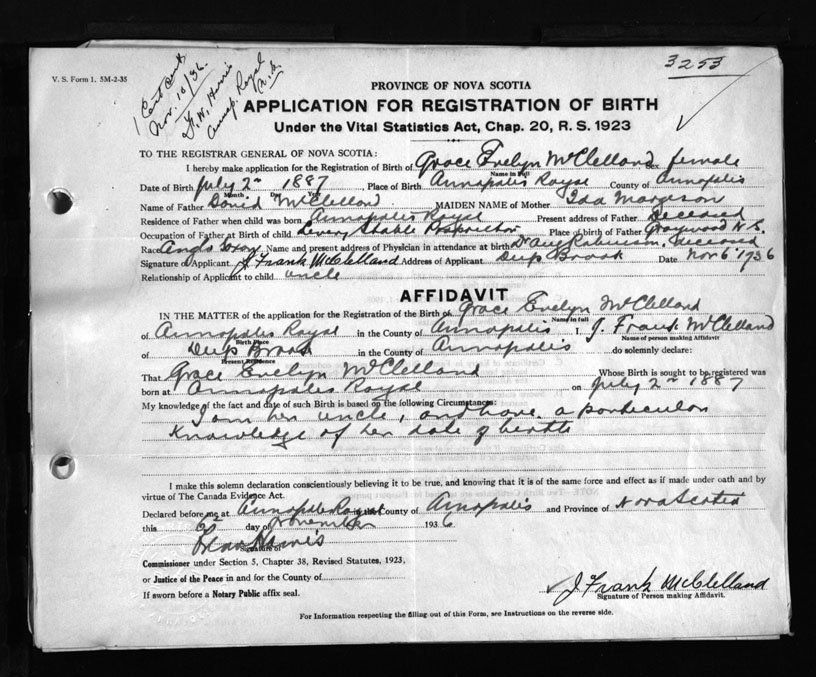 3253
V. S. Form 1. 5M-2-35
Nov. 10/36.
Annap. Royal
N.S.
PROVINCE OF NOVA SCOTIA
APPLICATION FOR REGISTRATION OF BIRTH
Under the Vital Statistics Act, Chap. 20, R. S. 1923
TO THE REGISTRAR GENERAL OF NOVA SCOTIA:
I hereby make application for the Registration of Birth of Grace Evelyn McClelland Sex female
Name in Full
Date of Birth July 2nd 1887, Place of Birth Annapolis Royal County of Annapolis
Month Day Year
Name of Father David McClelland MAIDEN NAME of Mother Ida Margeson
Residence of Father when child was born Annapolis Royal Present address of Father Deceased
Occupation of Father at Birth of child Livery Stable Proprietor Place of birth of Father Graywood N.S.
Race Anglo Saxon Name and present address of Physician in attendance at birth Dr Aug Robinson, deceased
Signature of Applicant J. Frank McClelland Address of Applicant Deep Brook Date Nov 6 1936
Relationship of Applicant to child uncle
AFFIDAVIT
IN THE MATTER of the application for the Registration of the Birth of Grace Evelyn McClelland
Name in full
of Annapolis Royal in the County of Annapolis I, J. Frank McClelland
Birth Place Name of person making Affidavit
of Deep Brook in the County of Annapolis do solemnly declare:
Present Residence
That Grace Evelyn McClelland Whose Birth is sought to be registered was
born at Annapolis Royal on July 2nd 1887
My knowledge of the fact and date of such Birth is based on the following Circumstances:
I am her uncle, and have a particular
knowledge of her date of birth
I make this solemn declaration conscientiously believing it to be true, and knowing that it is of the same force and effect as if made under oath and by
virtue of The Canada Evidence Act.
Declared before me at Annapolis Royal in the County of Annapolis and Province of Nova Scotia
this day of November 1936
Signature of
Commissioner under Section 5, Chapter 38, Revised Statutes, 1923,
or Justice of the Peace in and for the County of
If sworn before a Notary Public affix seal.
J. Frank McClelland
Signature of Person making Affidavit.
For Information respecting the filling out of this Form, see Instructions on the reverse side.